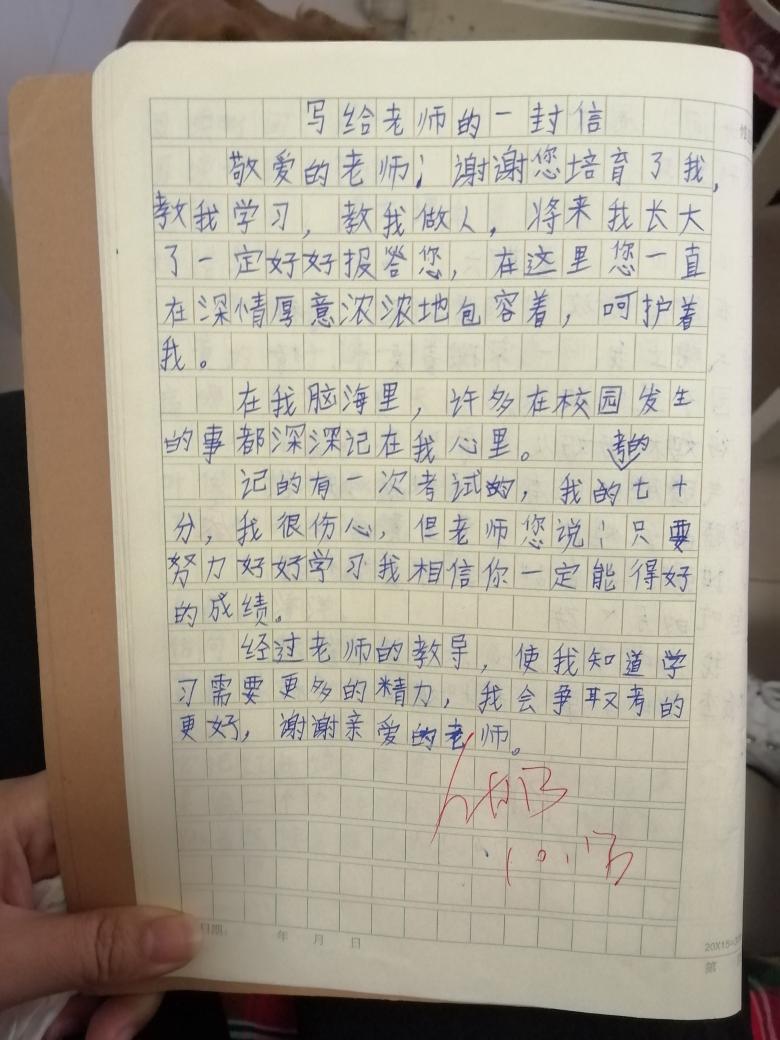 写给老师的一封信
敬爱的老师；谢谢您培育了我，
教我学习，教我做人，将来我长大
了一定好好报答您，在这里您一直
在深情厚意浓浓地包容着，呵护着
我。
在我脑海里，许多在校园发生
的事都深深记在我心里。
考的
记的有一次考试的，我的七十
分，我很伤心，但老师您说：只要
努力好好学习我相信你一定能得好
的成绩。
经过老师的教导，使我知道学
习需要更多的精力，我会争取考的
更好，谢谢亲爱的老师。
10.17
日期： 年 月 日
20X15=3
第